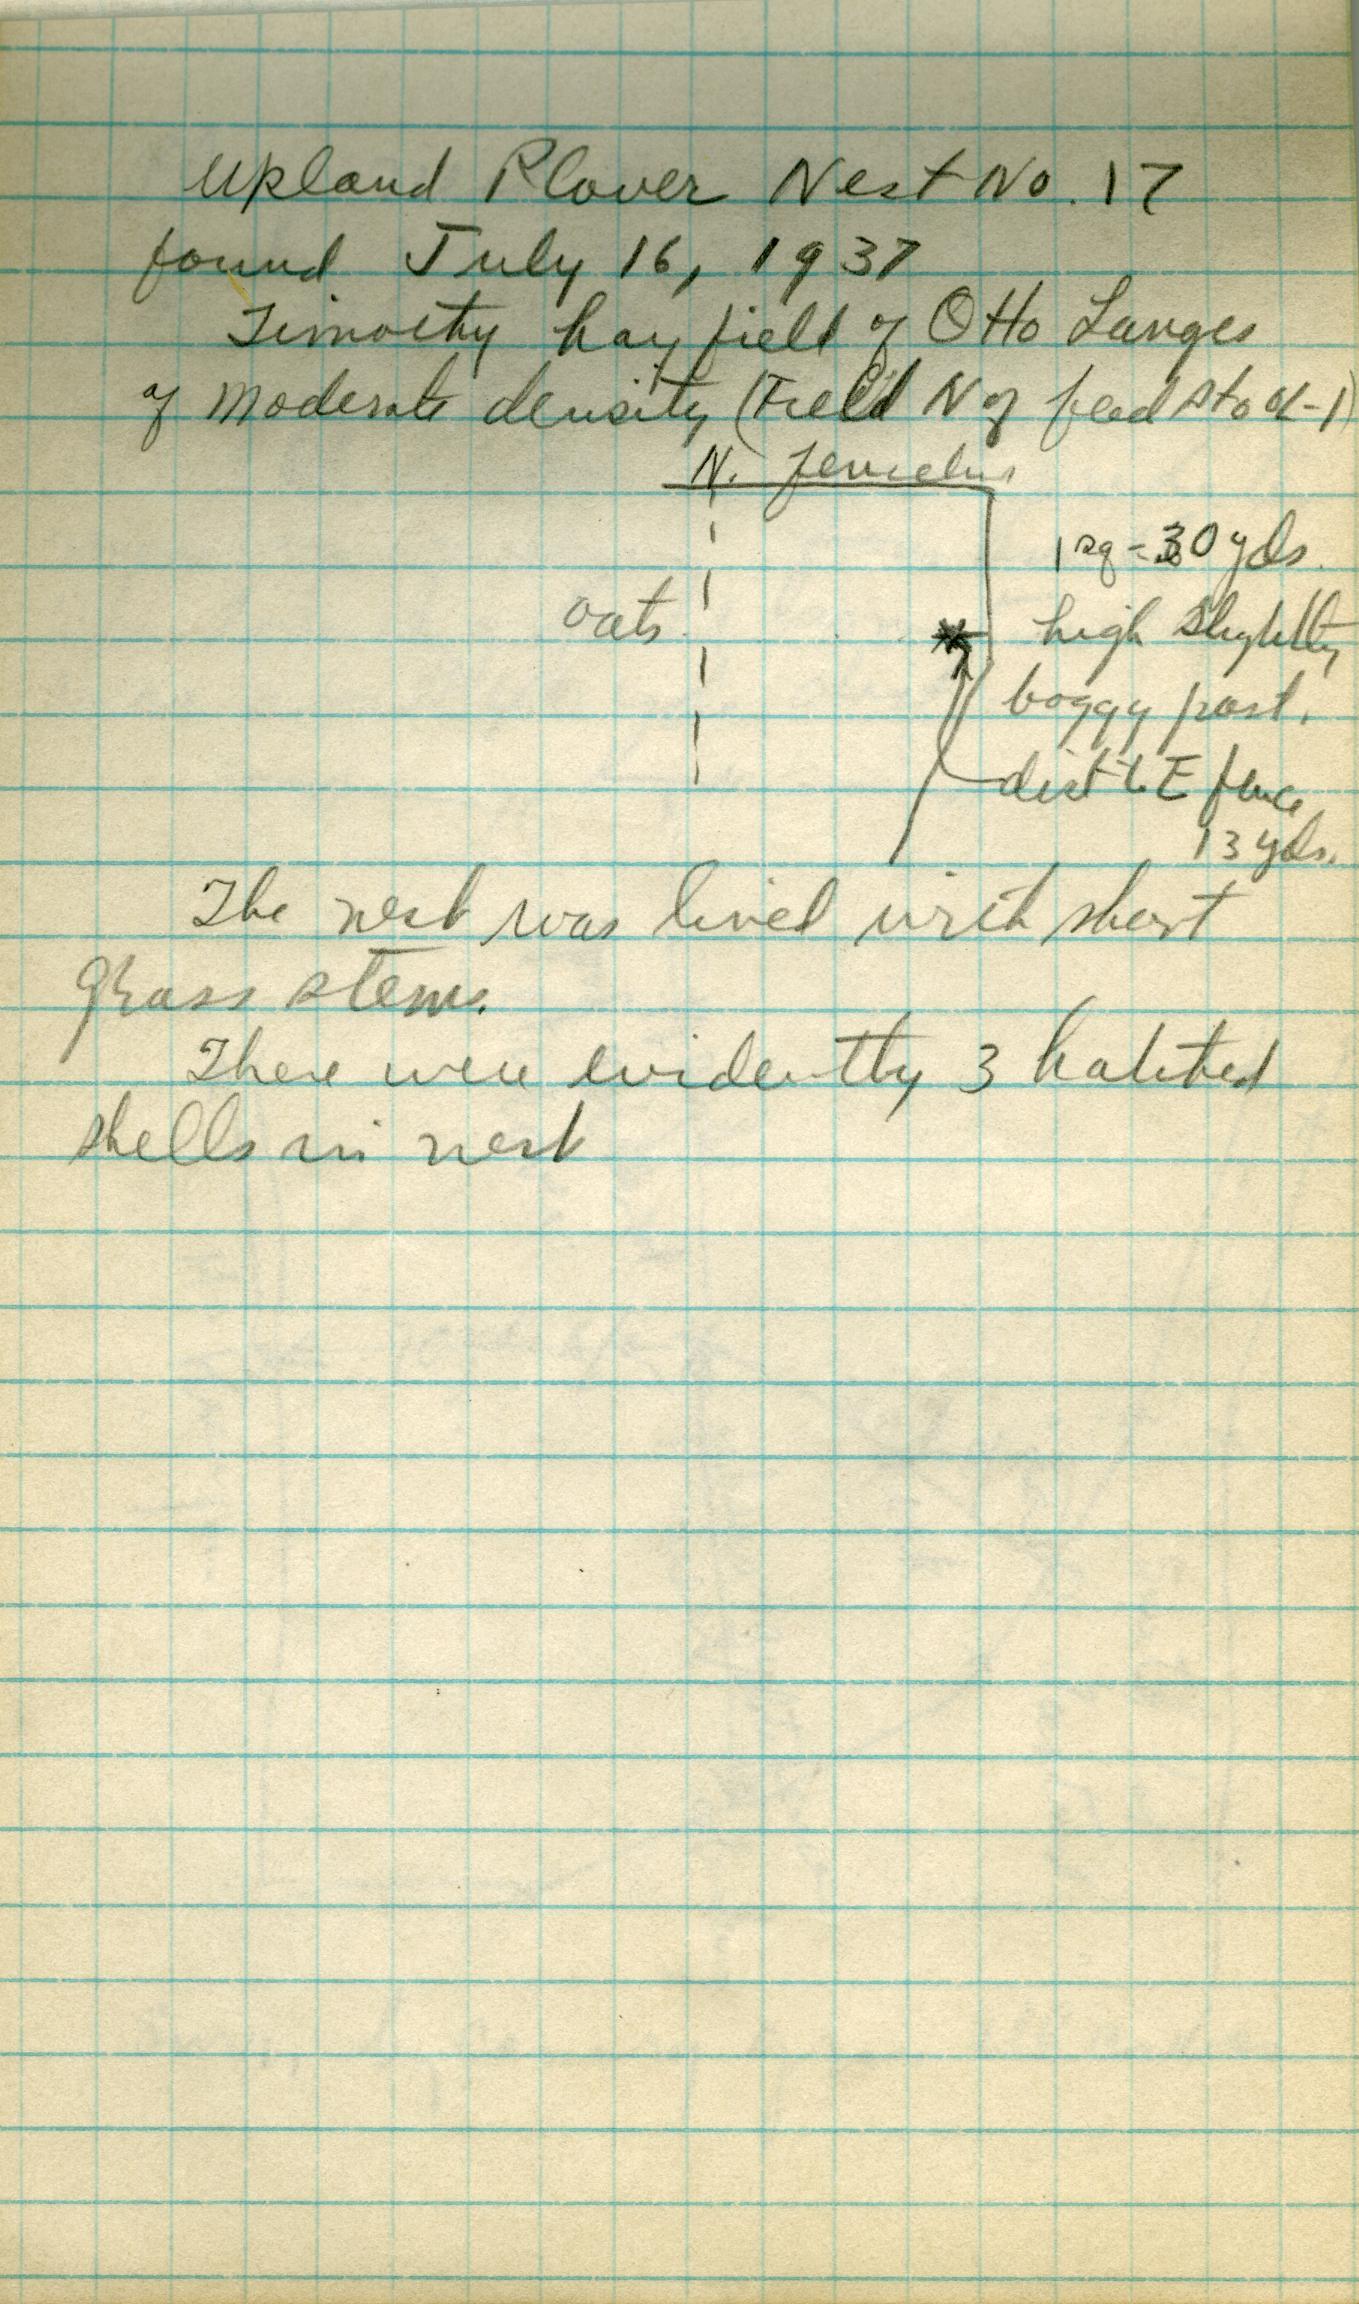 Upland Plover Nest No. 17
found July 16, 1937
Timothy hay field of Otto Langes
of moderate density (Field N of feed
N.
1 sq = 30 yds.
oats
high slightly
boggy past.
dist to E fence
13 yds.
The nest was lined with short
grass stems.
There were evidently 3 hatched
shells in nest